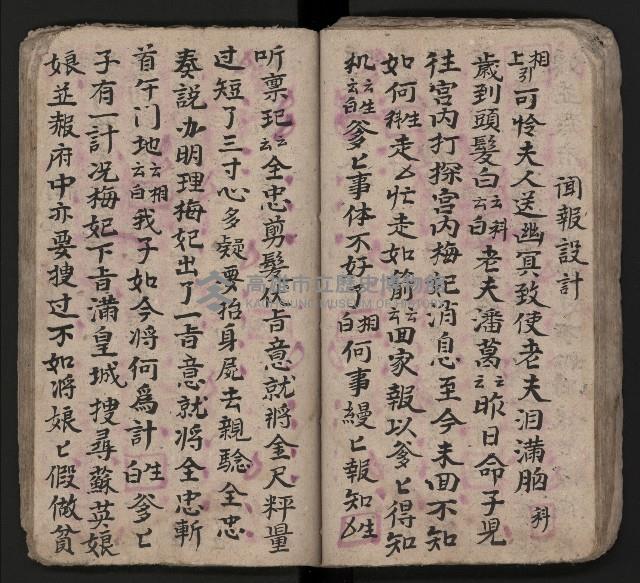 聞報設計
相上引可怜夫人送幽冥致使老夫泪滿胸科
歲到頭髮白云科云白老夫潘葛云云昨日命子児
往宮內打探宮內梅妃消息至今未回不知
如何生科走々忙走如箭云云回家報以爹匕得知
机云生云白爹匕事体不好了相白何事緩匕報知生
听禀 妃云云全忠剪髪依旨意就將金尺秤量
过短了三寸心多疑要抬身屍去親驗全忠
奏說办明理梅妃出了一旨意就將全忠斬
首午门地云相云白我子如今將何爲計生白爹匕
子有一計况梅妃下旨滿皇城搜尋蘇英娘
娘並報府中亦要搜过不如將娘匕假做貧
高雄市立歷史博物館
KAOHSIUNG MUSEUM OF HISTORY